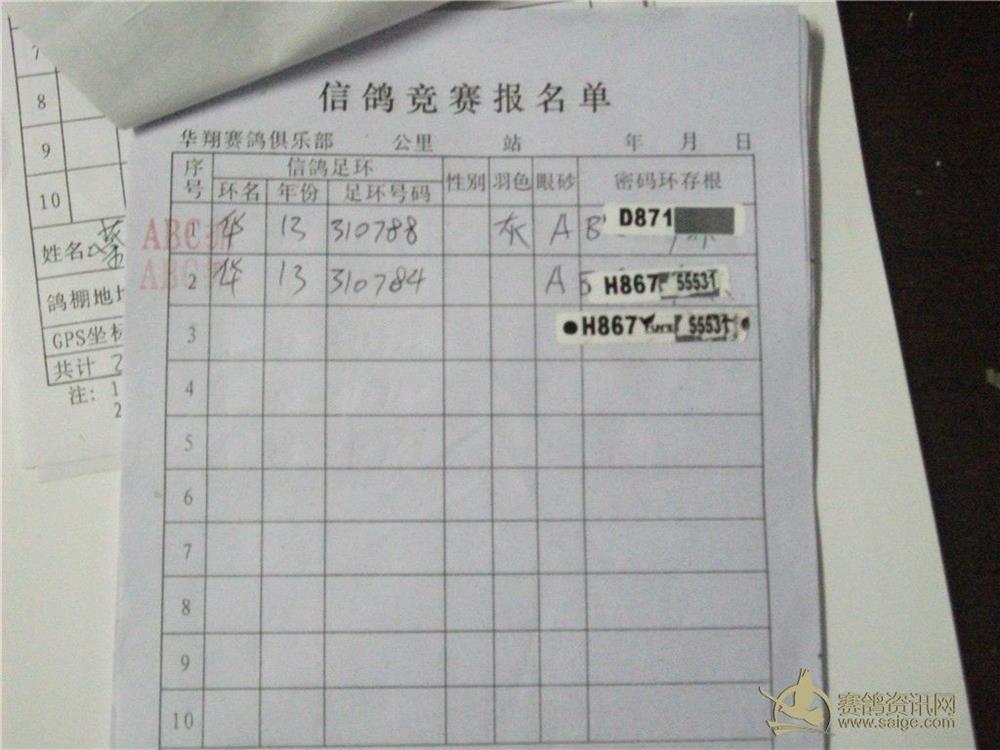 信鸽竞赛报名单
华翔赛鸽俱乐部 公里 站 年 月 日
序号 信鸽足环 性别 羽色 眼砂 密码环存根
环名 年份 足环号码
ABC
1 华 13 310788 灰 A B D871
ABC
2 华 13 310784 A H867 55531
3 H867 55531
4
5
6
7
8
9
10
7
8
9
10
姓名
鸽棚地
GPS坐标
共计 2
注: 1
2
赛鸽资讯网
www.saige.com